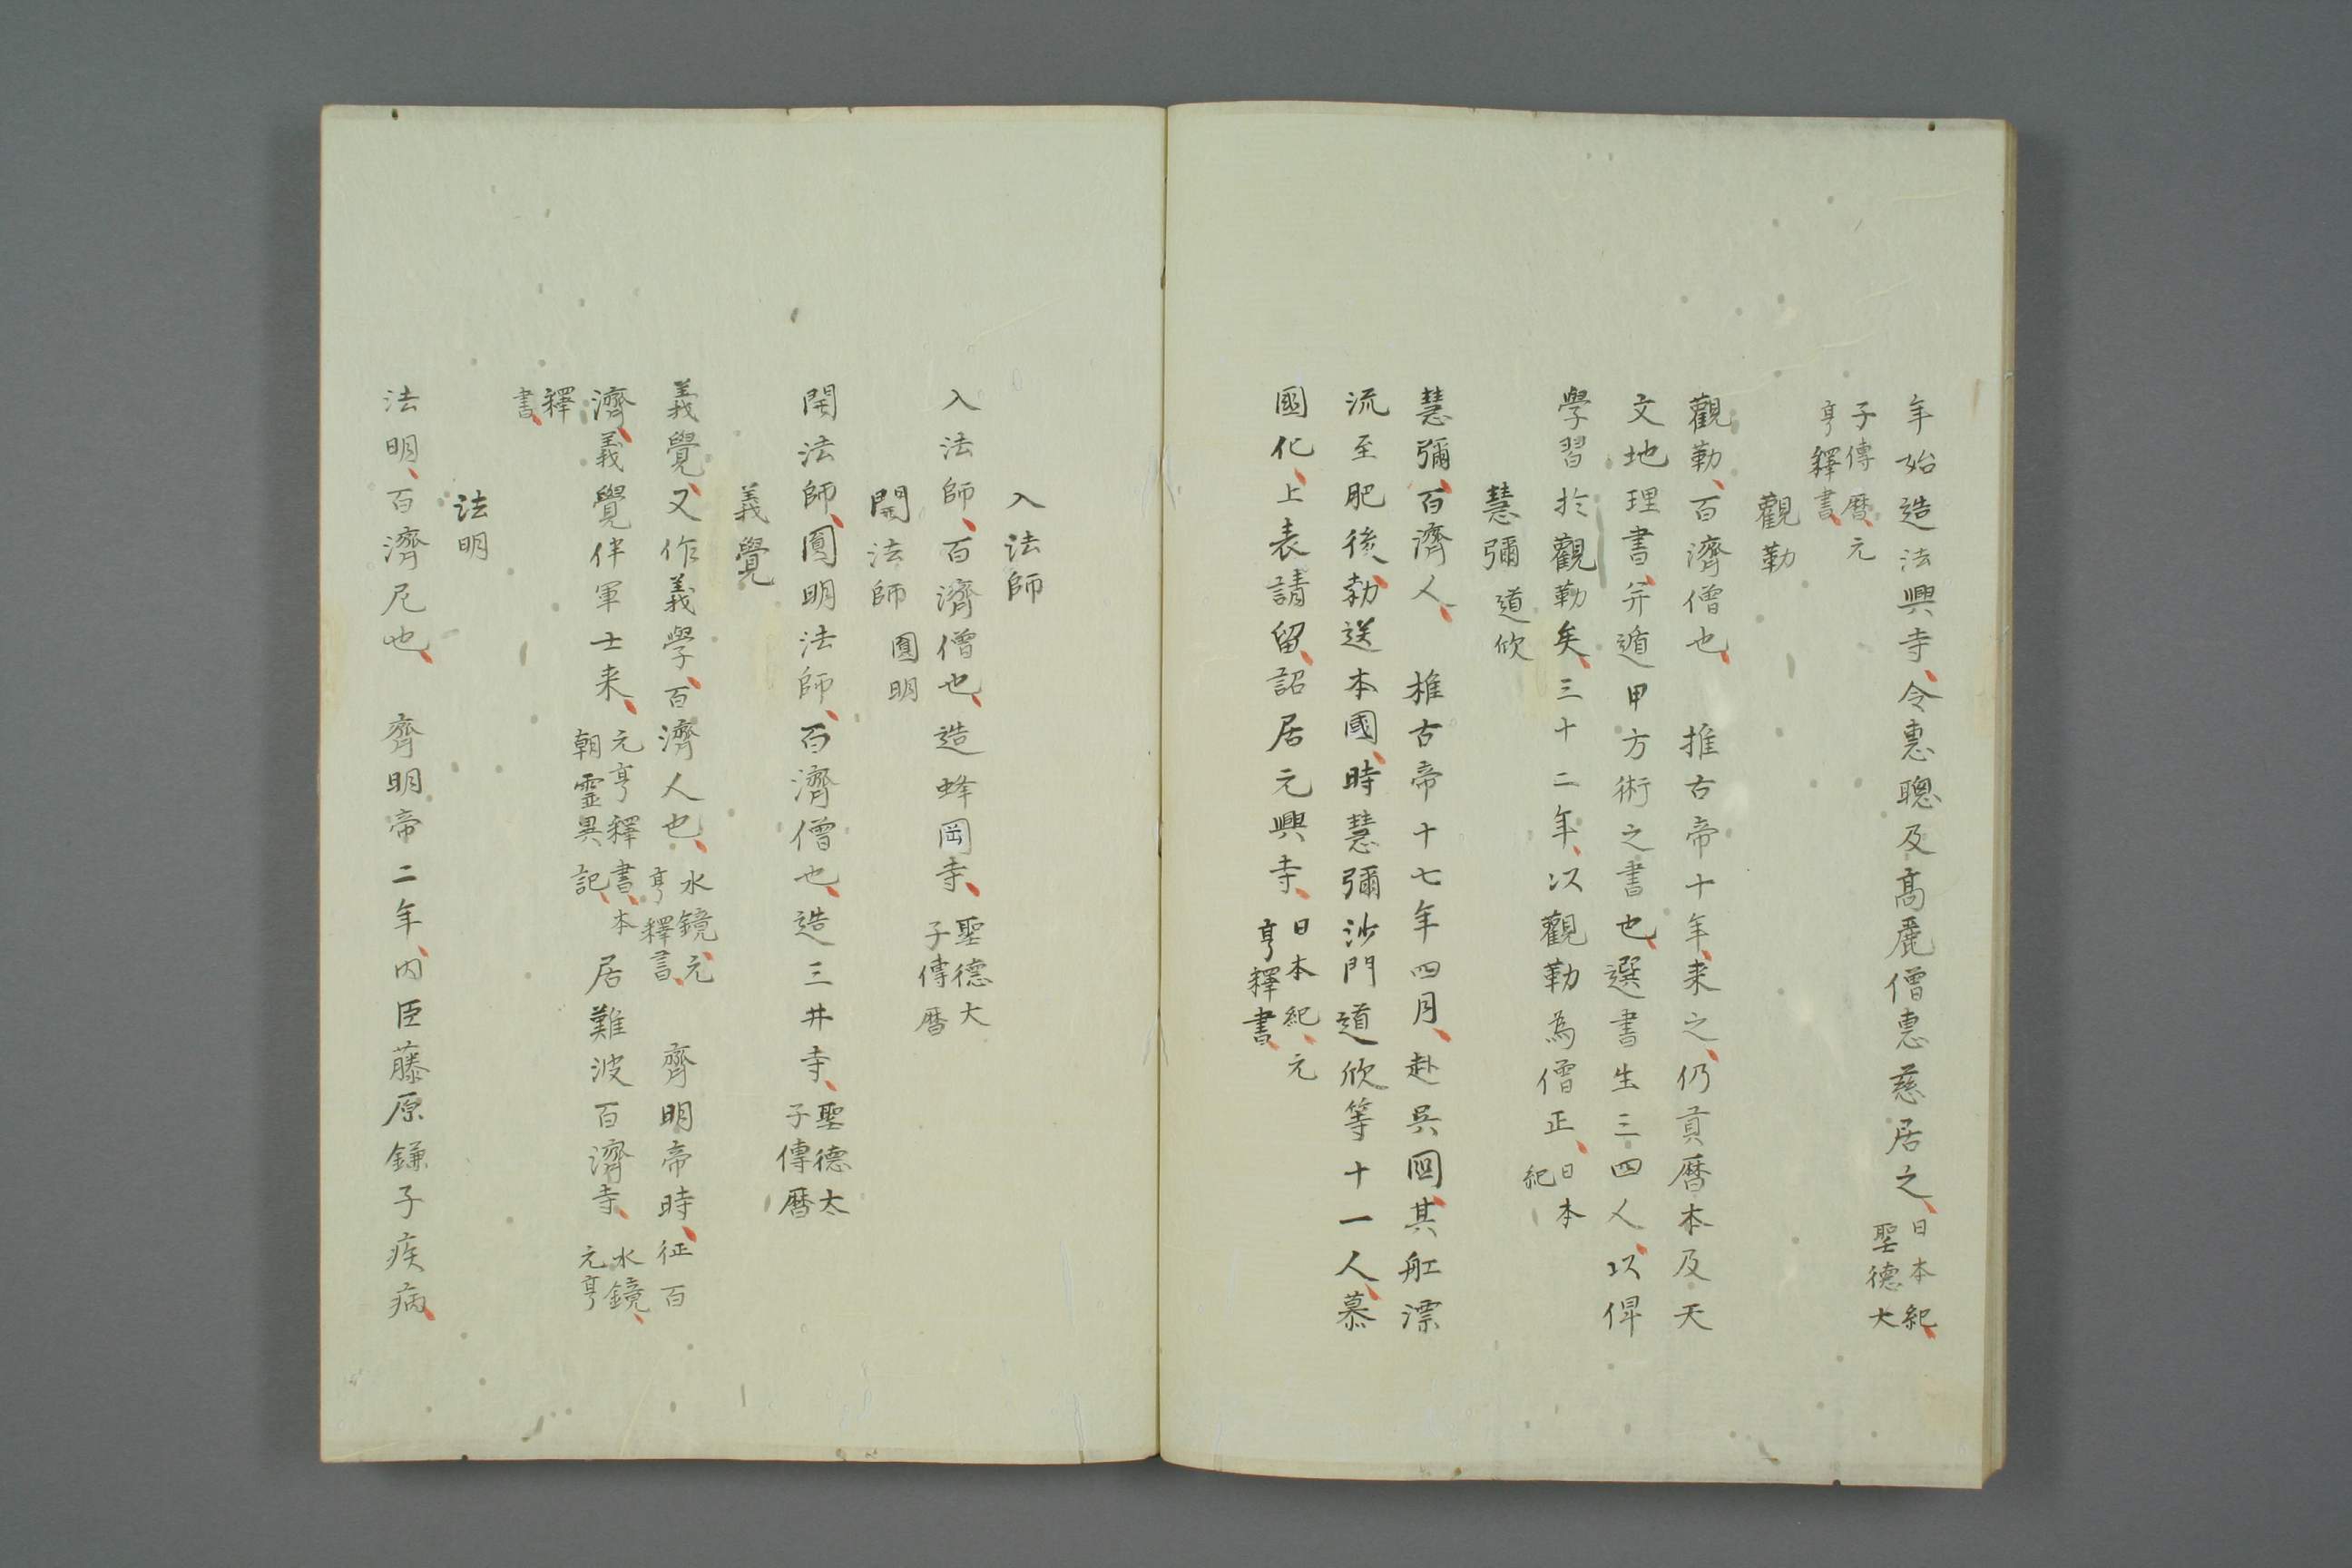 年始造法興寺、令惠聰及髙麗僧惠慈居之、日本紀、聖德大
子傳曆、元亨釋書、
觀勒
觀勒、百濟僧也、　推古帝十年、来之、仍貢曆本及天
文地理書、并遁甲方術之書也、選書生三四人、以俾
學習於觀勒矣、三十二年、以觀勒為僧正、日本紀
慧彌　道欣
慧彌、百濟人、　推古帝十七年四月、赴呉國、其舡漂
流至肥後、勅送本國、時慧彌沙門道欣等十一人、慕
國化、上表請留、詔居元興寺、日本紀、元亨釋書、
入法師
入法師、百濟僧也、造蜂岡寺、聖德大子傳曆
開法師　圓明
開法師、圓明法師、百濟僧也、造三井寺、聖德太子傳曆
義覺
義覺、又作義學、百濟人也、水鏡、元亨釋書、　齊明帝時、征百
濟、義覺伴軍士来、元亨釋書、本朝靈異記、居難波百濟寺、水鏡、元亨
釋書、
法明
法明、百濟尼也、　齊明帝二年、内臣藤原鎌子疾病、